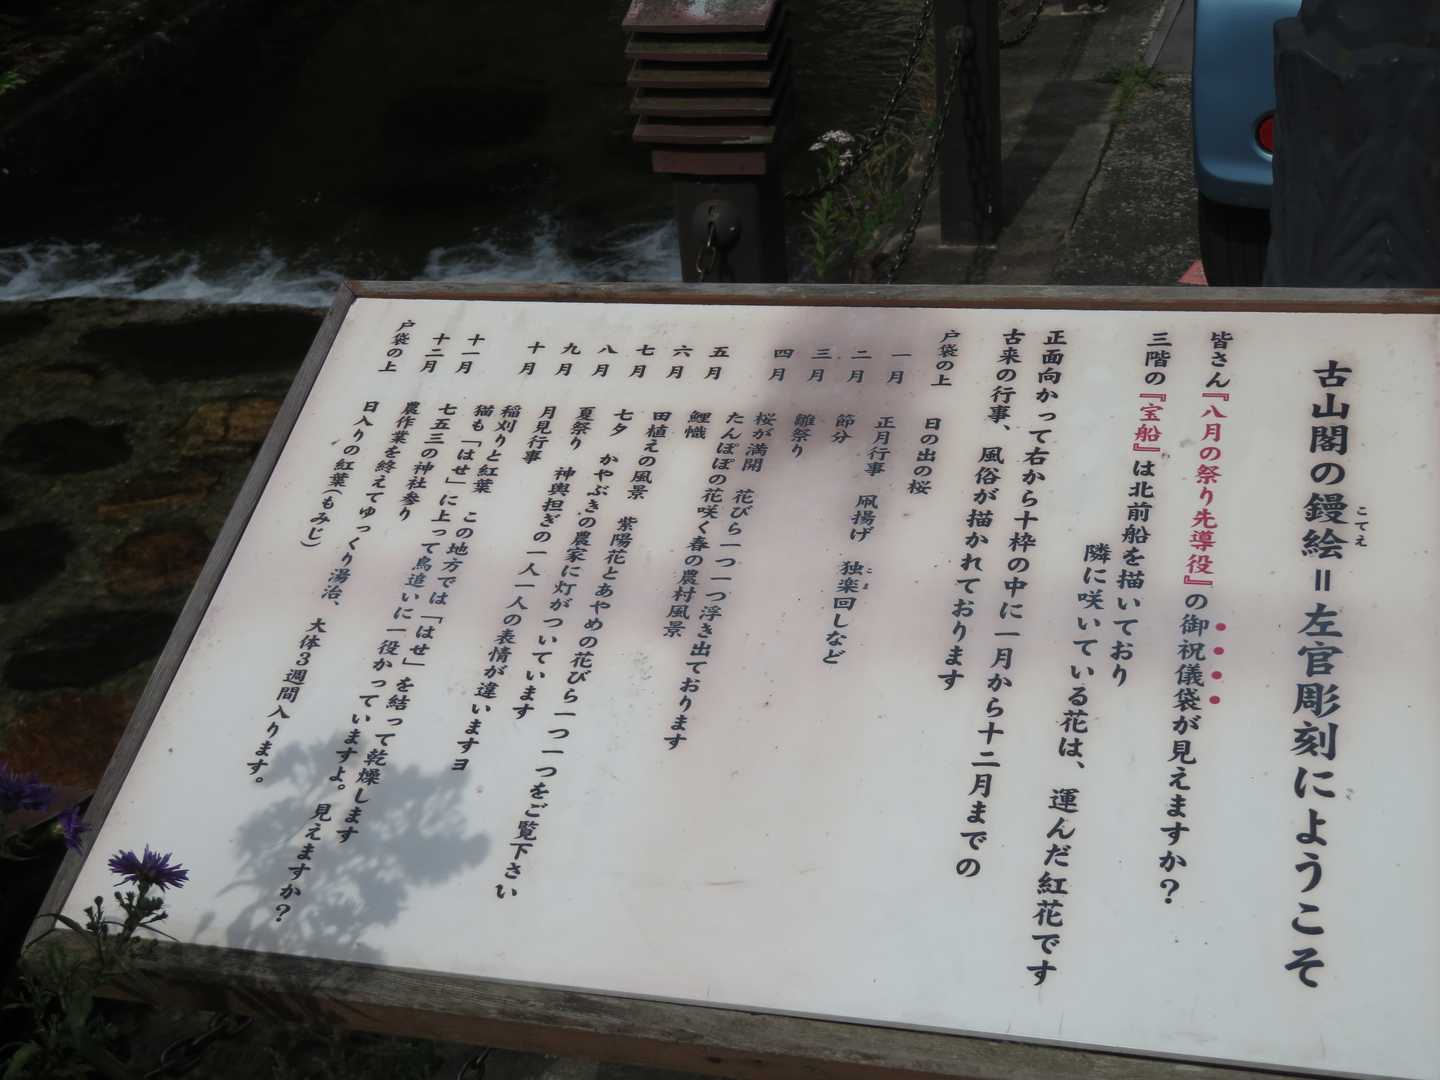 古山閣の鏝絵=左官彫刻にようこそ
こてえ
皆さん『八月の祭り先導役』の御祝儀袋が見えますか?
三階の『宝船』は北前船を描いており
隣に咲いている花は、運んだ紅花です
正面向かって右から十枠の中に一月から十二月までの
古来の行事、風俗が描かれております
戸袋の上 日の出の桜
一月 正月行事 凧揚げ 独楽回しなど
こま
二月 節分
三月 雛祭り
四月 桜が満開 花びら一つ一つ浮き出ております
たんぽぽの花咲く春の農村風景
五月 鯉幟
六月 田植えの風景 紫陽花とあやめの花びら一つ一つをご覧下さい
七月 七夕 かやぶきの農家に灯がついています
八月 夏祭り 神輿担ぎの一人一人の表情が違いますヨ
九月 月見行事
十月 稲刈りと紅葉 この地方では「はせ」を結って乾燥します
猫も「はせ」に上って鳥追いに一役かっていますよ。見えますか?
十一月 七五三の神社参り
十二月 農作業を終えてゆっくり湯治、大体3週間入ります。
戸袋の上 日入りの紅葉(もみじ)